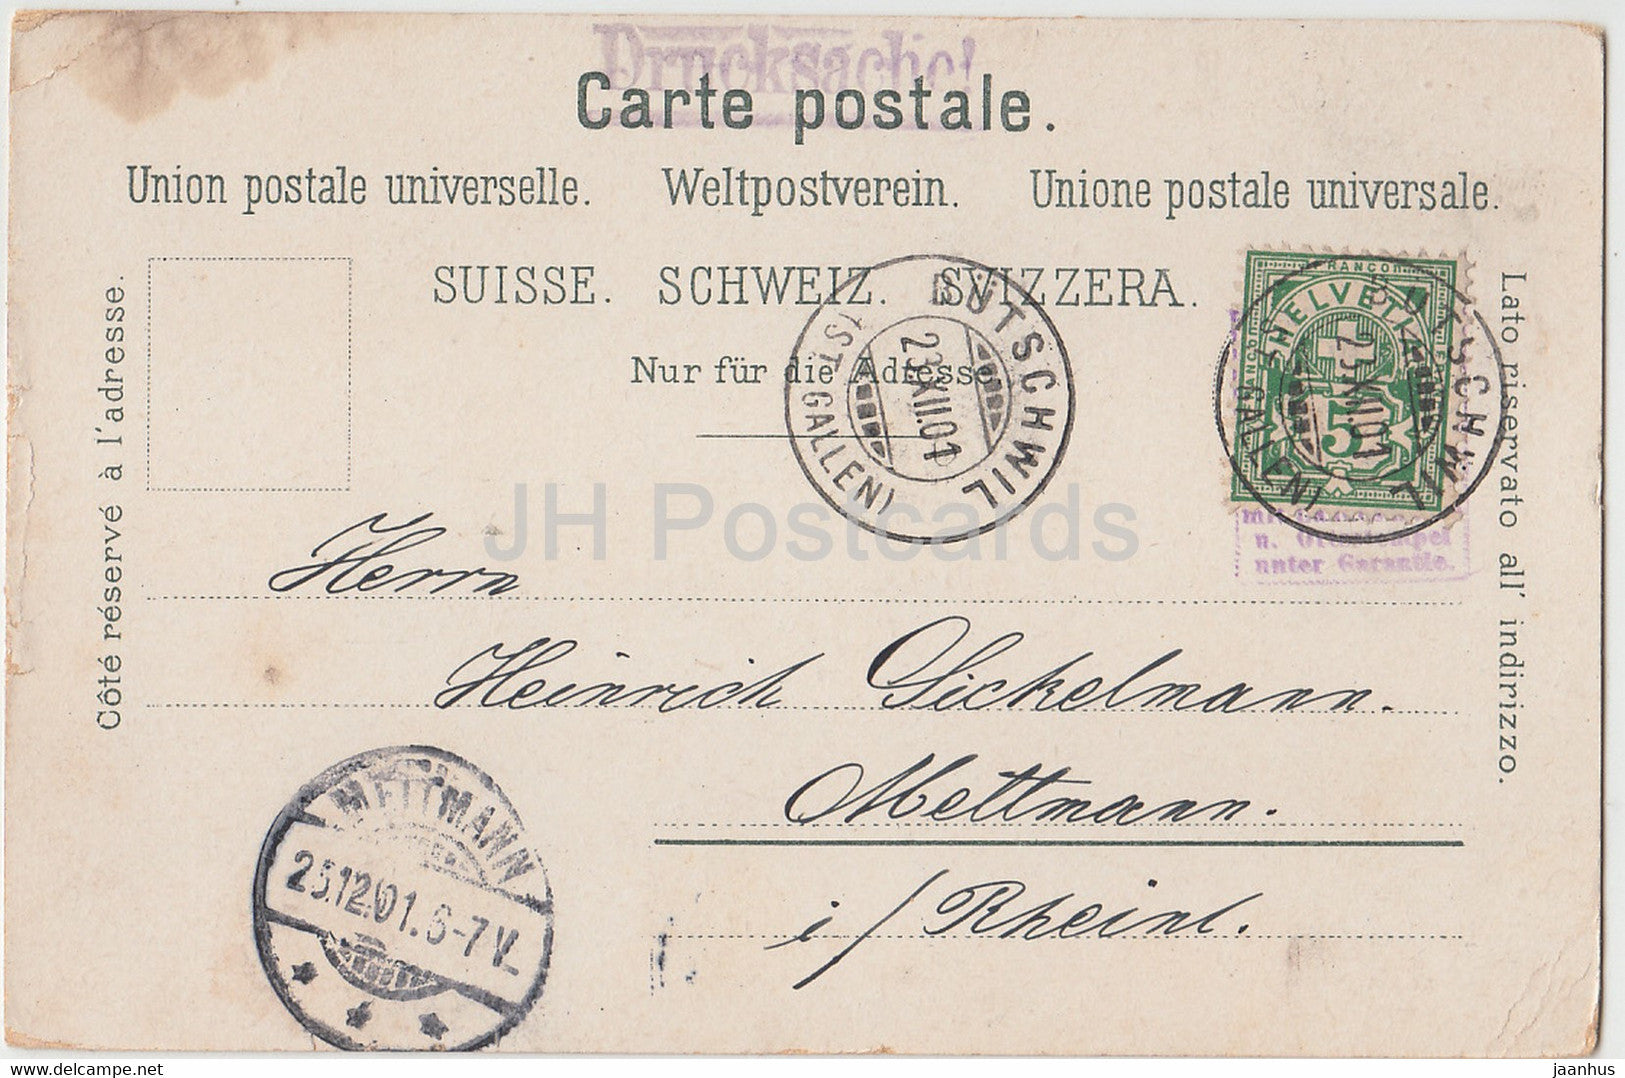 Drucksache!
Carte postale.
Union postale universelle. Weltpostverein. Unione postale universale.
SUISSE. SCHWEIZ. SVIZZERA.
Nur für die Adresse
Côté réservé à l'adresse.
Lato riservato all' indirizzo.
BÜTSCHWIL
23.XII.01
(ST. GALLEN)
FRANCO
HELVETIA
5
BÜTSCHWIL
23.XII.01
(ST. GALLEN)
unter Garantie.
JH Postcards
Herrn
Heinrich Sickelmann.
Mettmann.
i/Rheinl.
METTMANN
25.12.01. 6-7 V.
hip.com
jaanhus